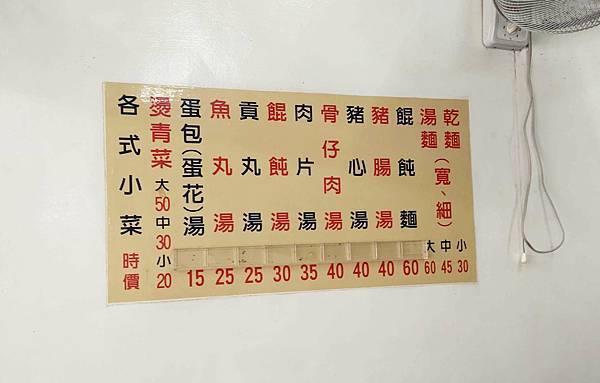 乾麵(寬、細)
湯麵
大60 中45 小30
餛飩麵 60
豬腸湯 40
豬心湯 40
骨仔肉湯 40
肉片湯 35
餛飩湯 30
貢丸湯 25
魚丸湯 25
蛋包(蛋花)湯 15
燙青菜 大50 中30 小20
各式小菜 時價